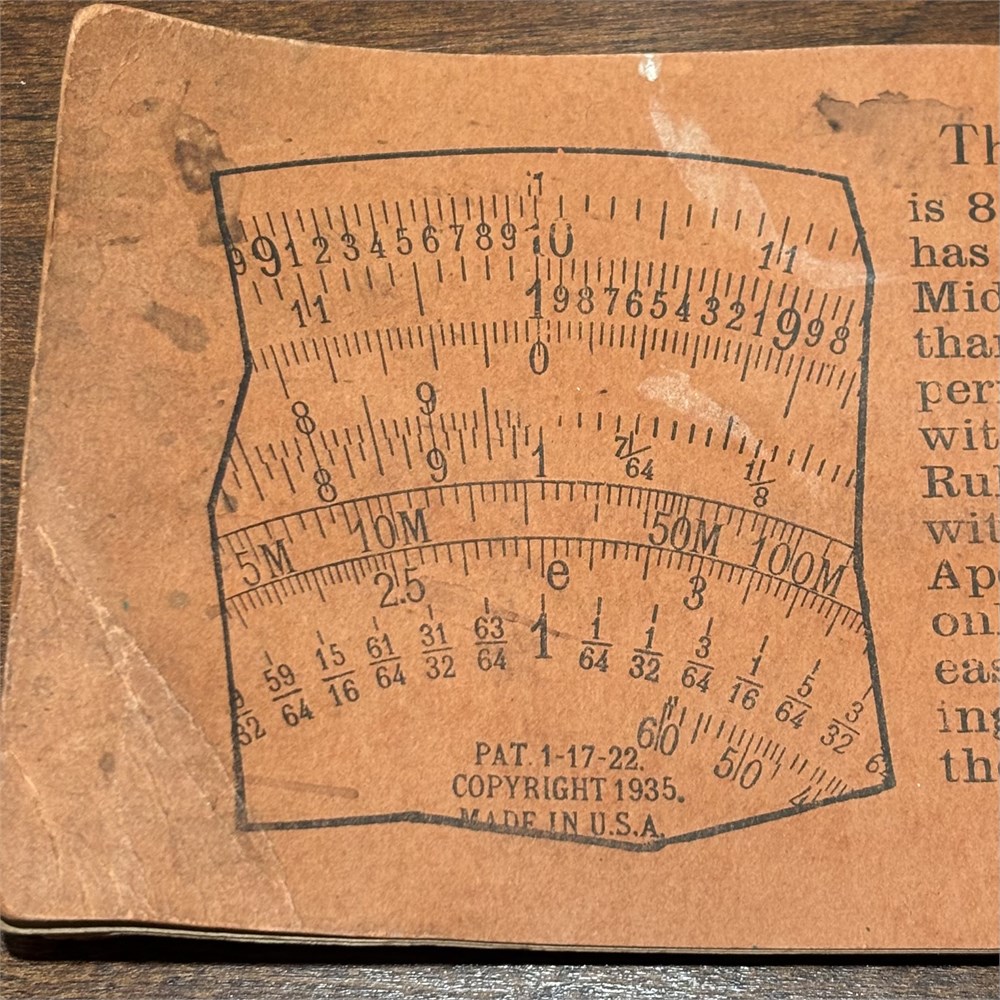 1
9 9 1 2 3 4 5 6 7 8 9 10 11
11 1 9 8 7 6 5 4 3 2 1 9 9 8
0
8 9
8 9 1 7/64 11/8
5M 10M 50M 100M
2.5 e 3
59/64 15/16 61/64 31/32 63/64 1 1/64 1/32 3/64 1/16 5/64 3/32
60 50
PAT. 1-17-22.
COPYRIGHT 1935.
MADE IN U.S.A.
is 8
has
Mid
than
per
wit
Rul
wit
Ap
on
eas
ing
the